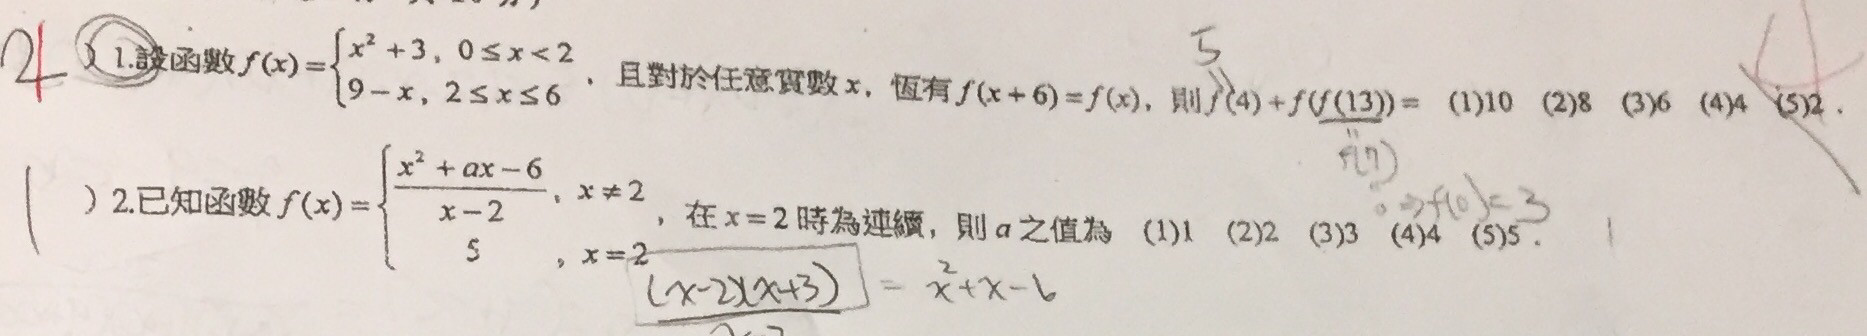 1.設函數 f(x) = { x² + 3, 0 ≤ x < 2
9 − x, 2 ≤ x ≤ 6 , 且對於任意實數 x, 恆有 f(x + 6) = f(x), 則 f(4) + f(f(13)) = (1)10 (2)8 (3)6 (4)4 (5)2 .
5
f(7)
) 2.已知函數 f(x) = { (x² + ax − 6)/(x − 2), x ≠ 2
5, x = 2 , 在 x = 2 時為連續, 則 a 之值為 (1)1 (2)2 (3)3 (4)4 (5)5 .
⇒ f(0) = 3
(x-2)(x+3) = x²+x-6